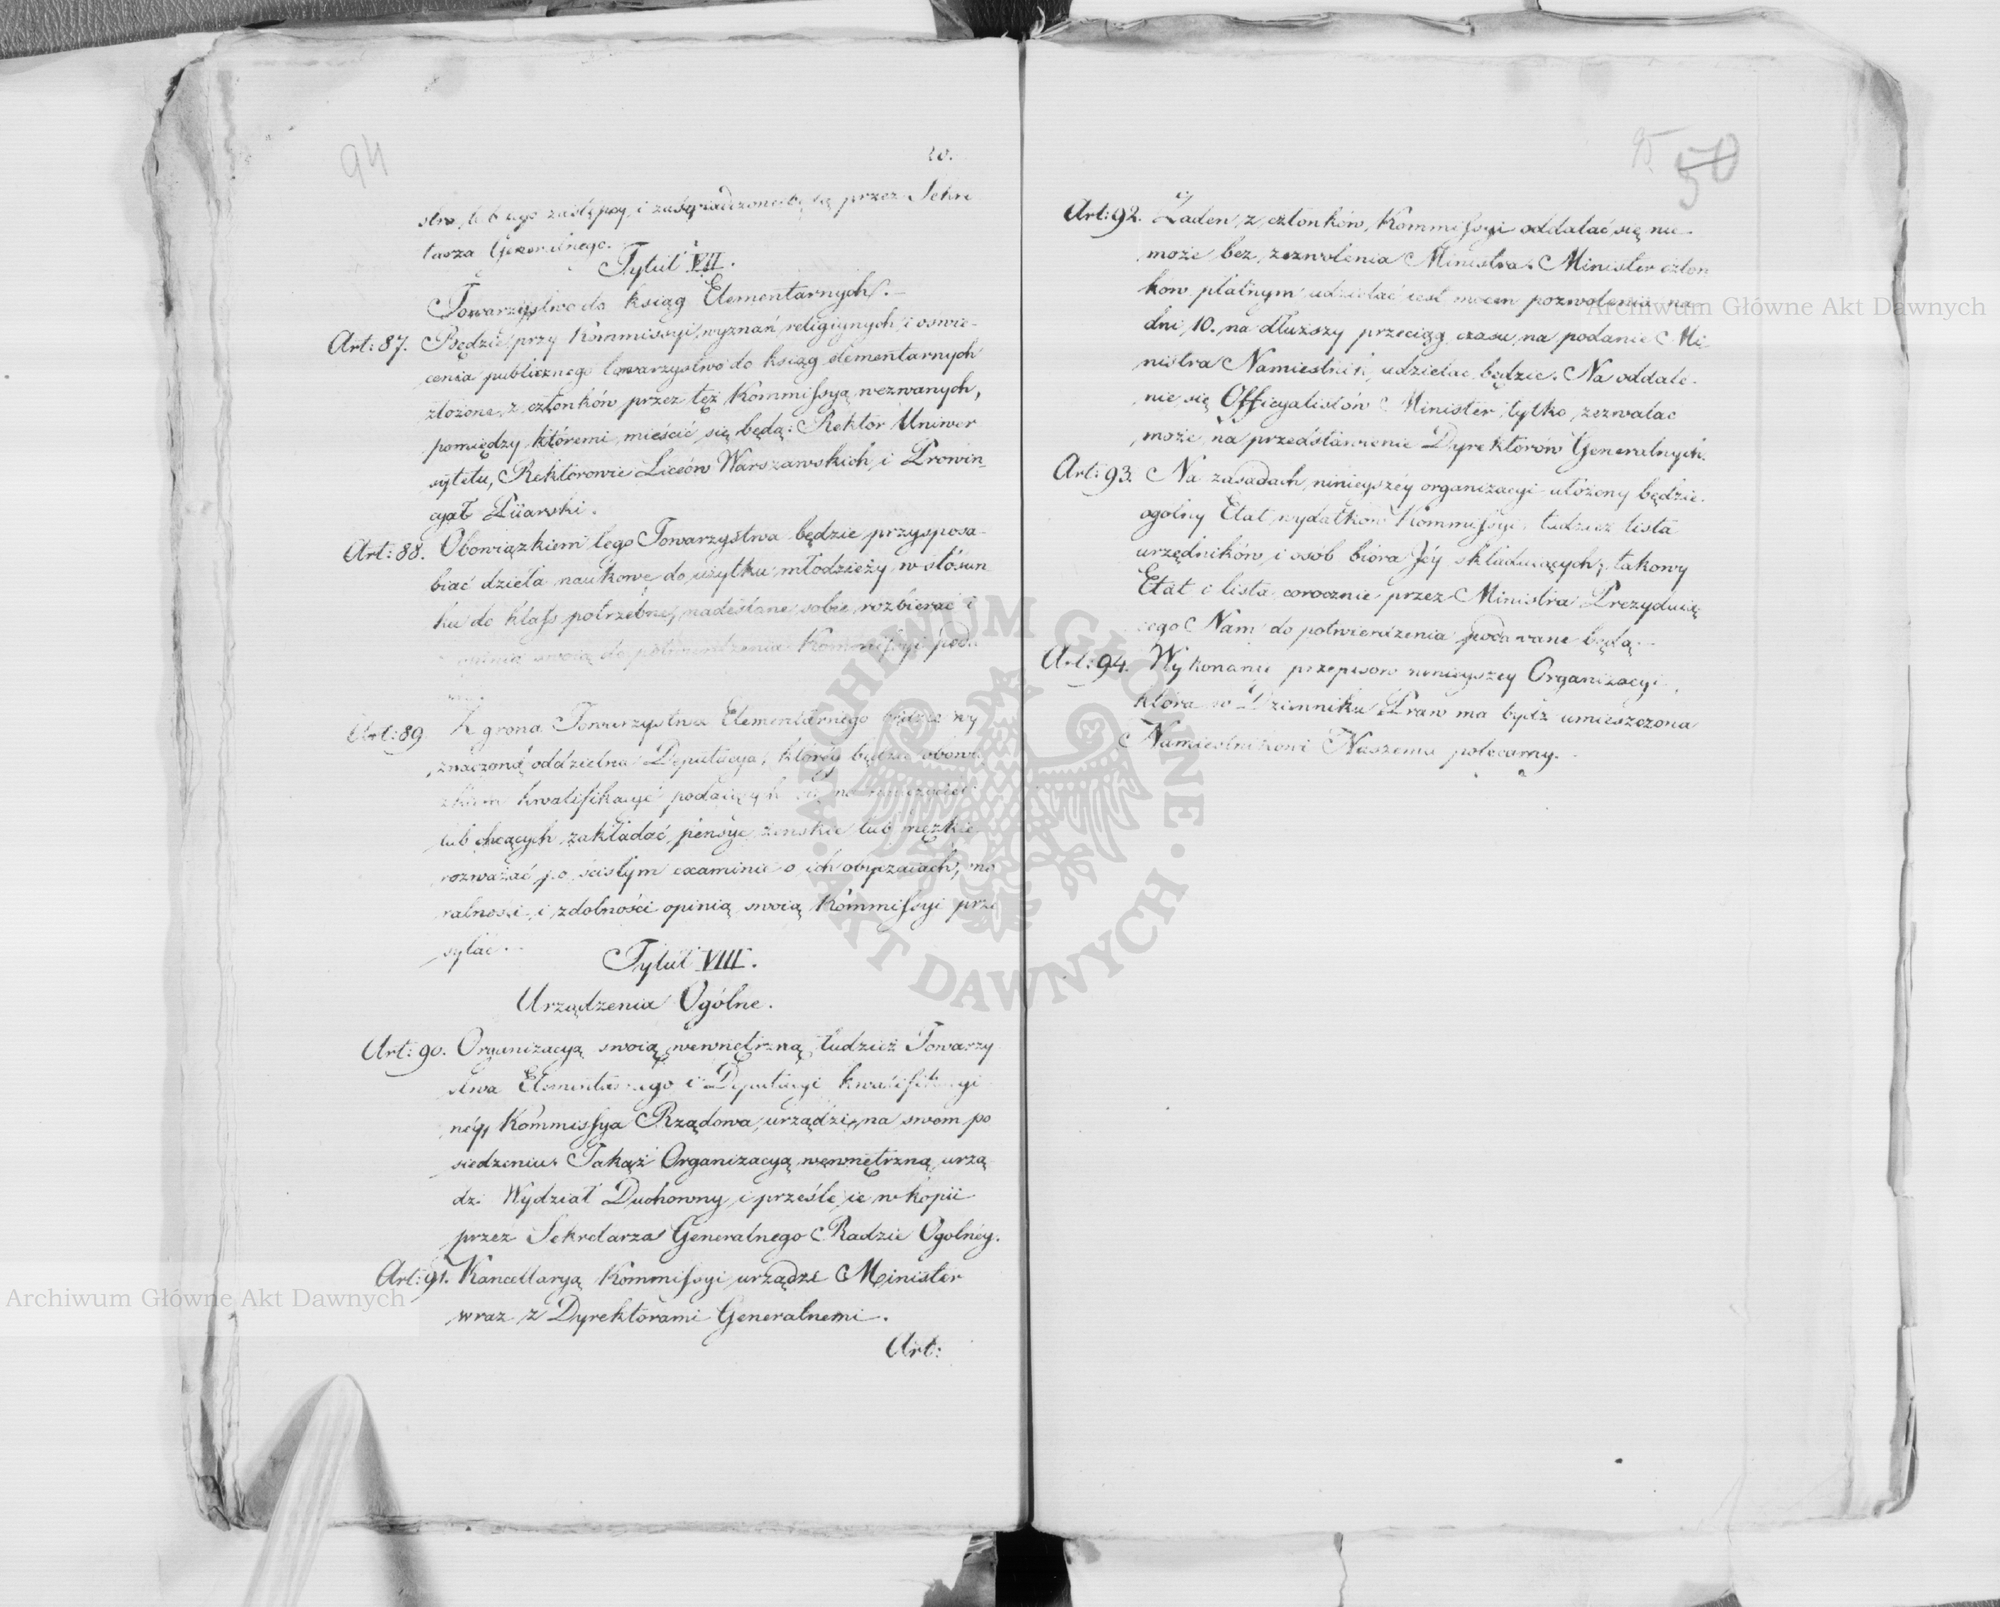 94
20.
przez Sekre
tarza Generalnego.
Tytuł VII.
Towarzystwo do ksiąg Elementarnych.
Art: 87. Będzie przy Kommissyi wyznań religiynych i oswie-
cenia publicznego towarzystwo do ksiąg elementarnych
złożone z członków przez tęż Kommissyą wezwanych,
pomiędzy któremi mieścić się będą: Rektor Uniwer
sytetu, Rektorowie Liceów Warszawskich, i Prowin-
cyał Piiarski.
Art: 88. Obowiązkiem tego Towarzystwa będzie przysposa-
biać dzieła naukowe do użytku młodzieży w stósun
ku do klass potrzebne, nadesłane sobie rozbierać i
opinią swoią do potwierdzenia Kommissyi poda
Art: 89. Z grona Towarzystwa Elementarnego będzie wy
znaczoną oddzielna Deputacya, którey będzie obowi
zkiem kwalifikacye podaiących się na
lub chcących zakładać pensye żenskie lub męzkie
rozważać i po ścisłym examinie o ich obyczaiach, mo
ralności, i zdolności opinią swoią Kommissyi prze
syłać.
Tytuł VIII.
Urządzenia Ogólne.
Art: 90. Organizacyą swoią wewnętrzną tudzież Towarzy
stwa Elementarnego i Deputacyi kwalifikacyi
ney, Kommissya Rządowa urządzi, na swom po
siedzeniu. Takąż Organizacyą wewnętrzną urzą
dzi Wydział Duchowny i prześle ie w kopii
przez Sekretarza Generalnego Radzie Ogolnéy.
Art: 91. Kancellaryą Kommissyi urządzi Minister
wraz z Dyrektorami Generalnemi.
Art:
95 50
Art: 92. Żaden z członków Kommissyi oddalać się nie
może bez zezwolenia Ministra. Minister człon
kow płatnym udzielać iest mocen pozwolenia na
dni 10. na dłuższy przeciąg czasu na podanie Mi
nistra Namiestnik udzielac będzie. Na oddale-
nie się Officyalistów Minister tylko zezwalac
może na przedstawienie Dyrektorów Generalnych.
Art: 93. Na zasadach ninieyszéy organizacyi ułożony będzie
ogolny Etat wydatków Kommissyi, tudziez lista
urzędników i osob bióra Jéy składaiących; takowy
Etat i lista corocznie przez Ministra Prezyduią
cego Nam do potwierdzenia podawane będą.
Art: 94. Wykonanie przepisow ninieyszey Organizacyi,
która w Dzienniku Praw ma bydź umieszczona
Namiestnikowi Naszemu polecamy.
Archiwum Główne Akt Dawnych
Archiwum Główne Akt Dawnych
ARCHIWUM GŁÓWNE · AKT DAWNYCH ·